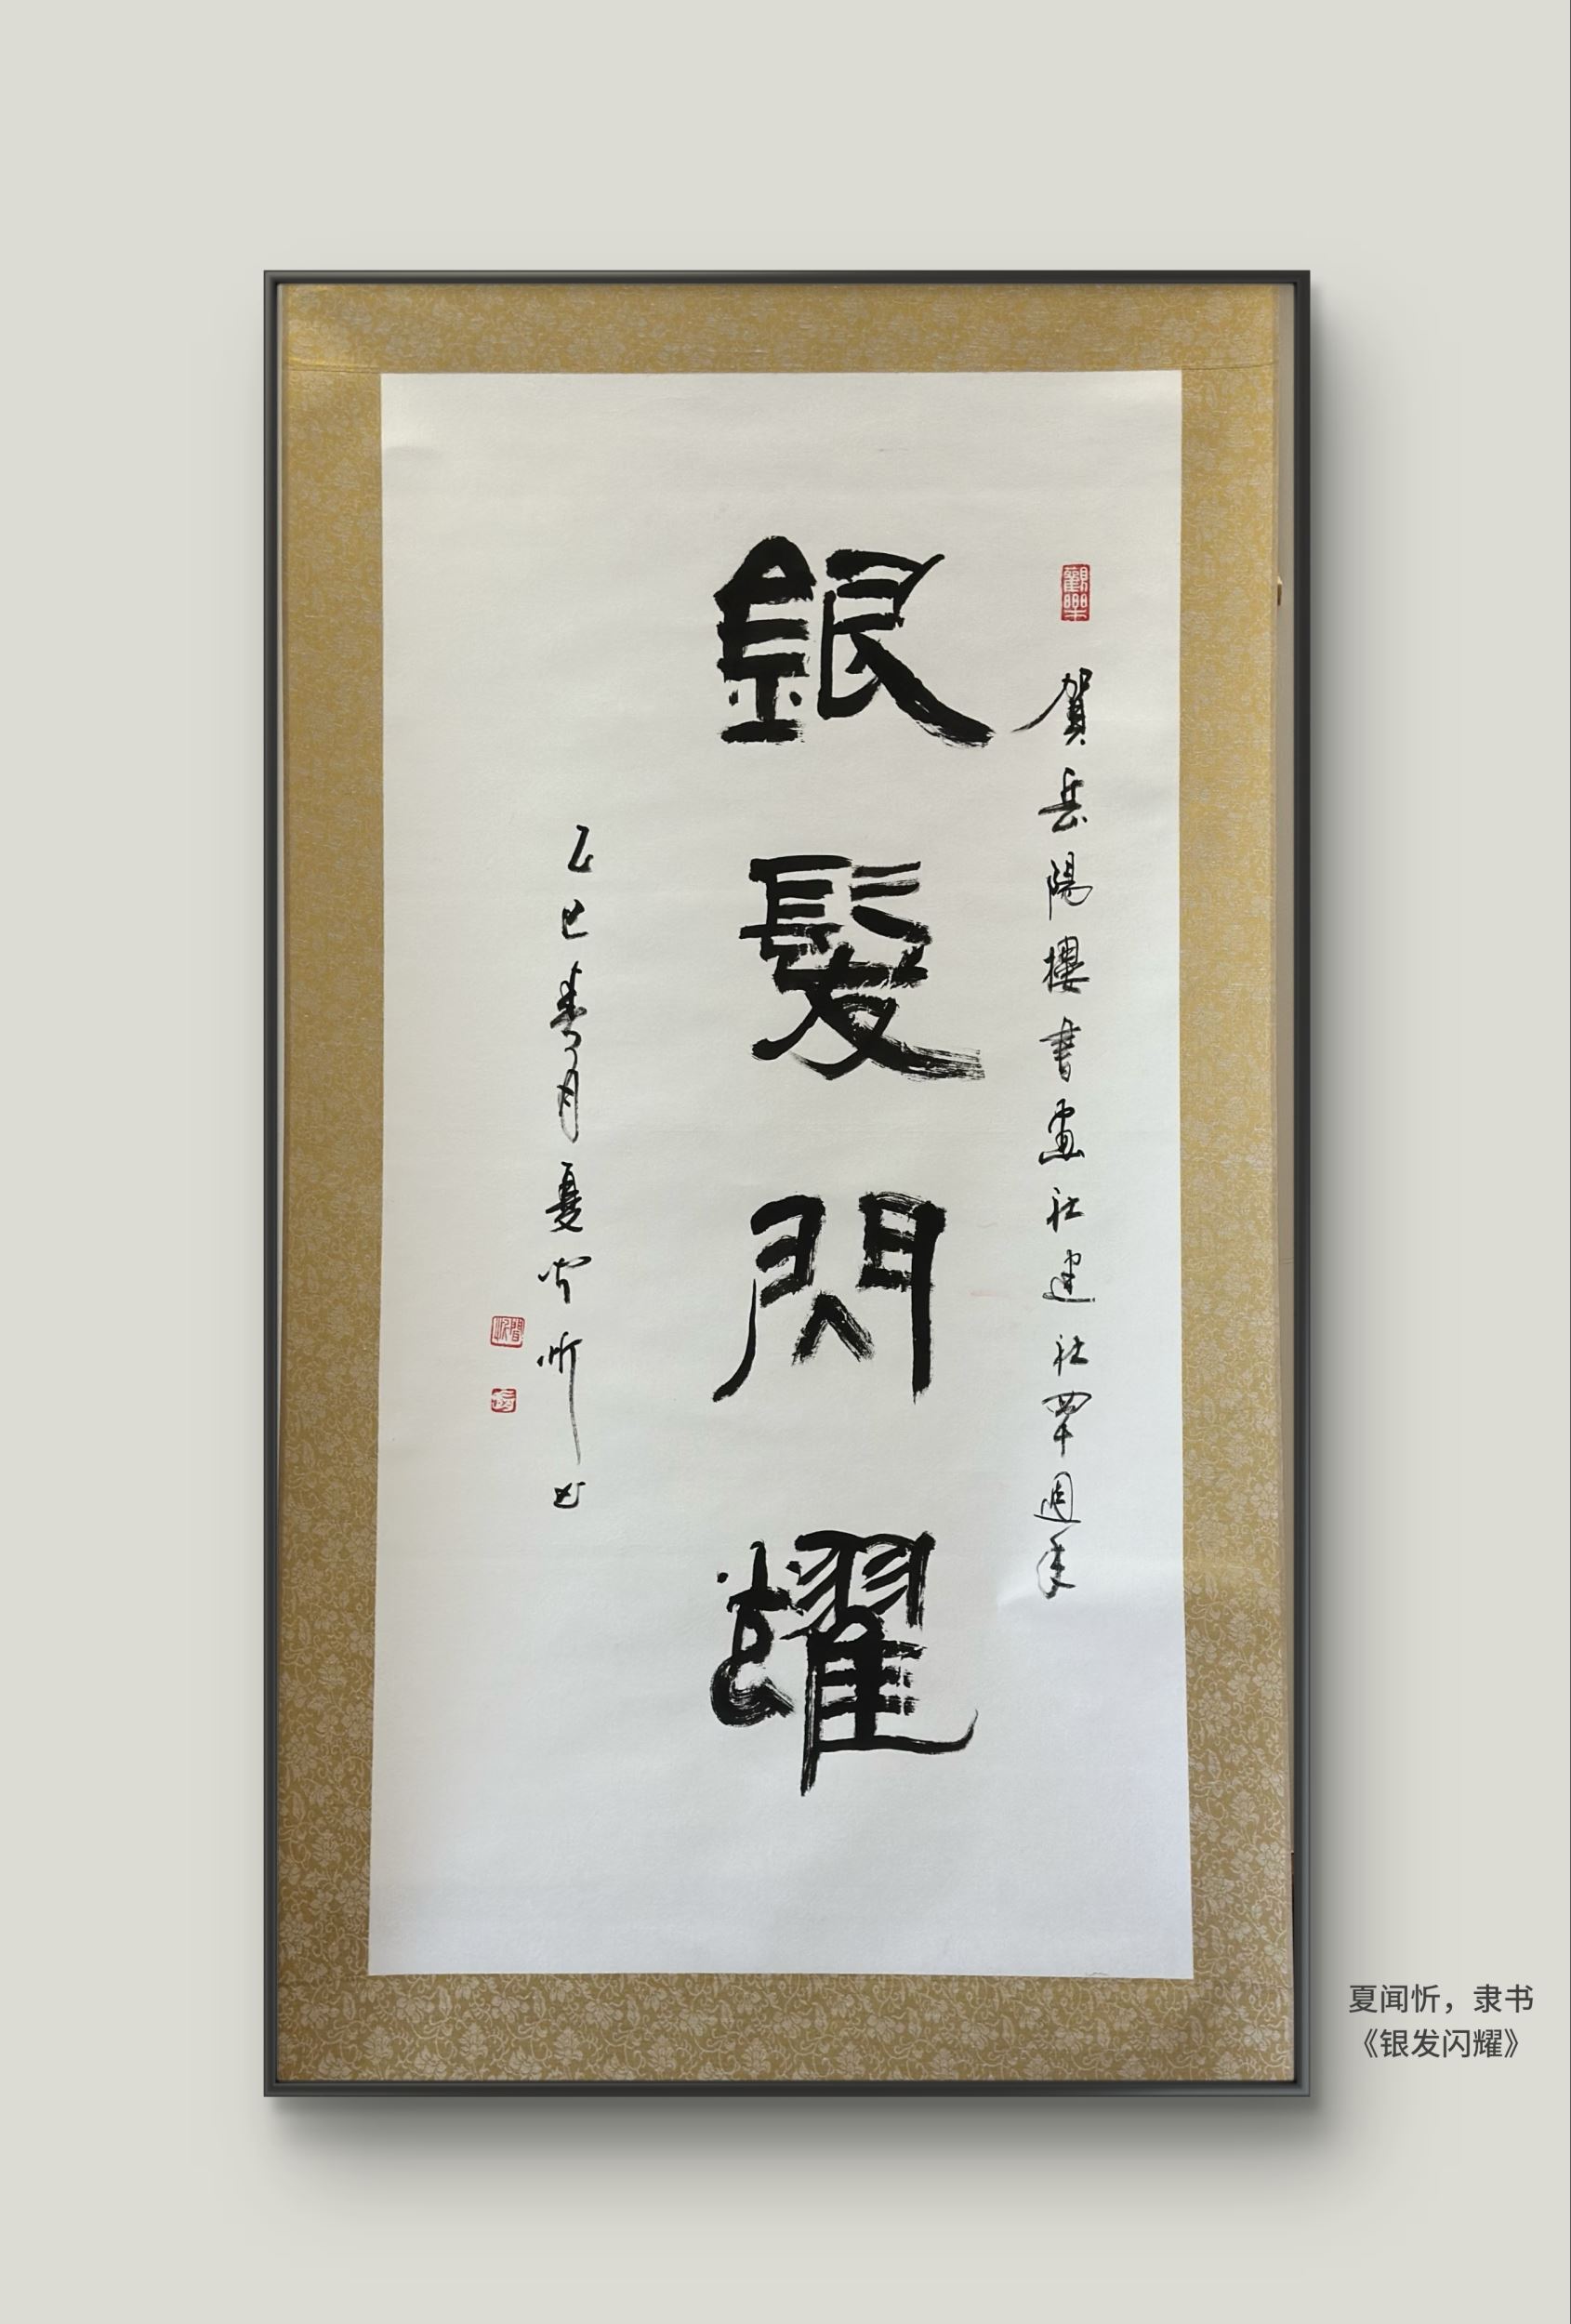 觀樂
賀岳陽樓書畫社建社四十週年
銀髮閃耀
乙巳春月夏闻忻书
夏闻忻，隶书
《银发闪耀》